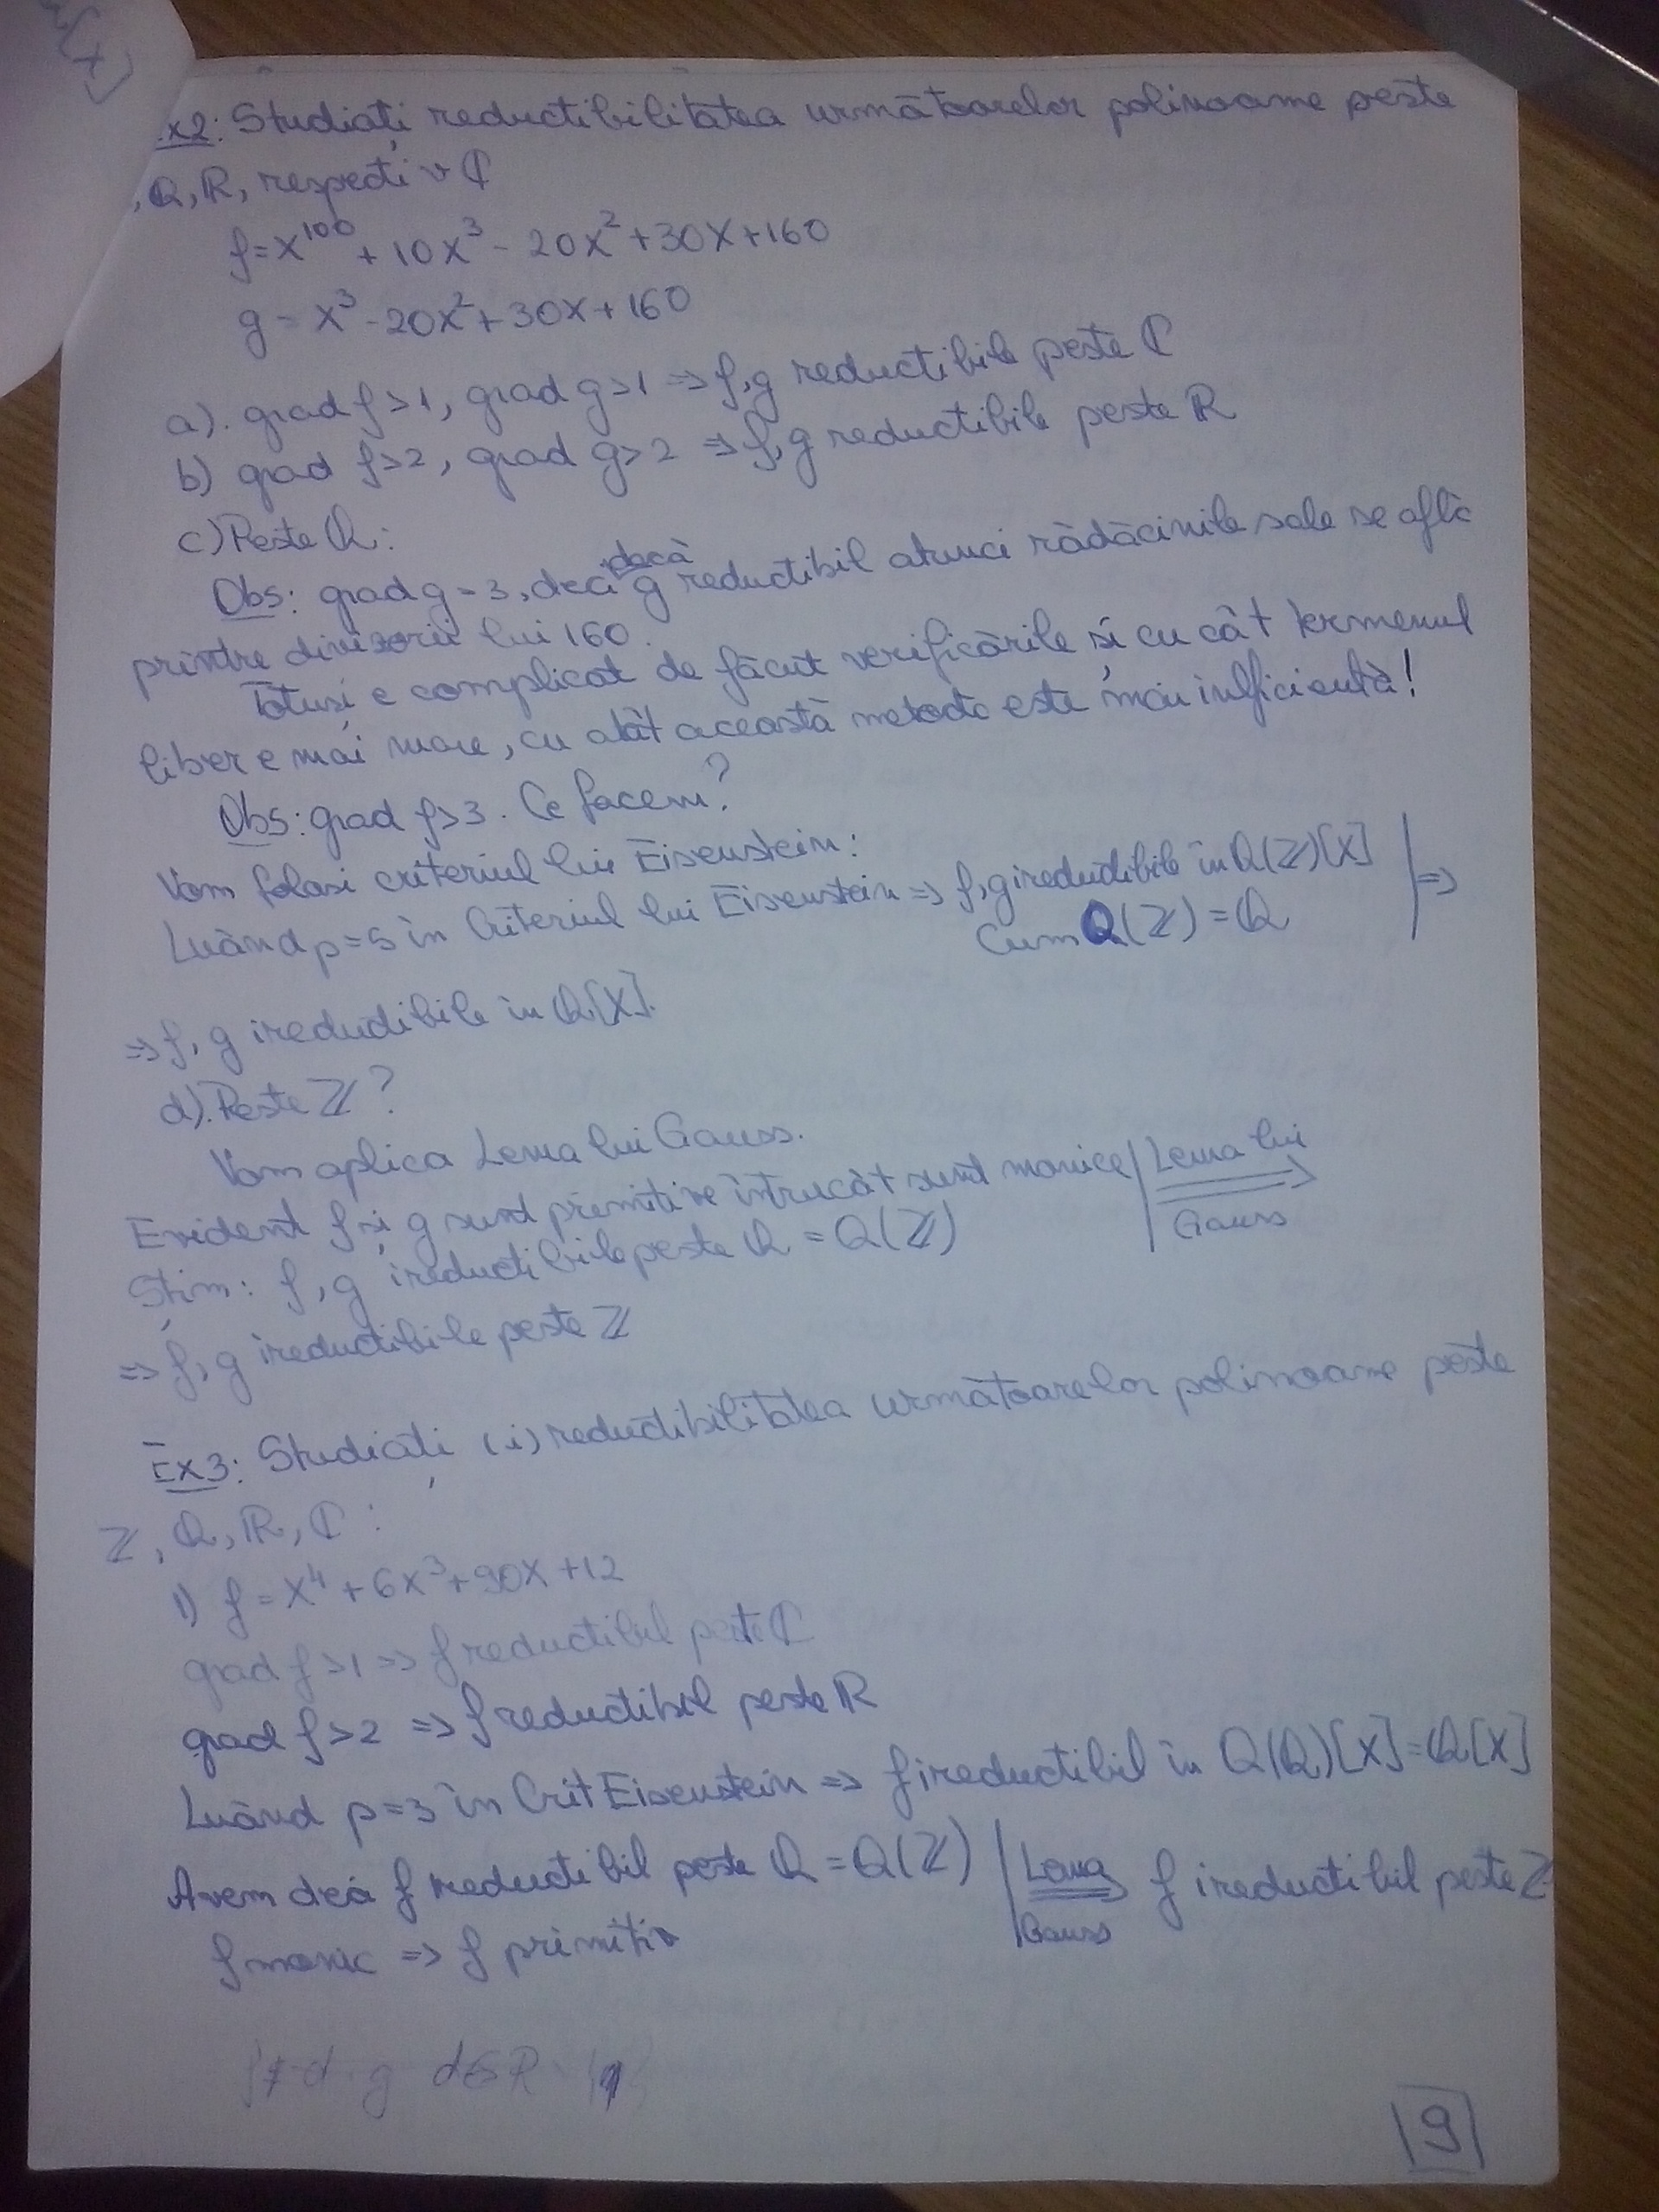 x2: Studiați reductibilitatea următoarelor polinoame peste
, Q, R, respectiv C
f = X^100 + 10X^3 - 20X^2 + 30X + 160
g = X^3 - 20X^2 + 30X + 160
a). grad f > 1, grad g > 1 => f, g reductibile peste C
b) grad f > 2, grad g > 2 => f, g reductibile peste R
c) Peste Q:
Obs: grad g = 3, deci dacă g reductibil atunci rădăcinile sale se află
printre divizorii lui 160.
Totuși e complicat de făcut verificările și cu cât termenul
liber e mai mare, cu atât această metodă este mai inificientă!
Obs: grad f > 3. Ce facem?
Vom folosi criteriul lui Eisenstein:
Luând p = 5 în Criteriul lui Eisenstein => f, g ireductibile în Q(Z)[X] | =>
Cum Q(Z) = Q
=> f, g ireductibile în Q[X].
d). Peste Z?
Vom aplica Lema lui Gauss.
Evident f și g sunt primitive întrucât sunt monice | Lema lui
Știm: f, g ireductibile peste Q = Q(Z) Gauss =>
=> f, g ireductibile peste Z
Ex3: Studiați (i)reductibilitatea următoarelor polinoame peste
Z, Q, R, C:
1) f = X^4 + 6X^3 + 90X + 12
grad f > 1 => f reductibil peste C
grad f > 2 => f reductibil peste R
Luând p = 3 în Crit Eisenstein => f ireductibil în Q(Q)[X] = Q[X]
Avem deci f ireductibil peste Q = Q(Z) | Lema Gauss => f ireductibil peste Z
f monic => f primitiv
9